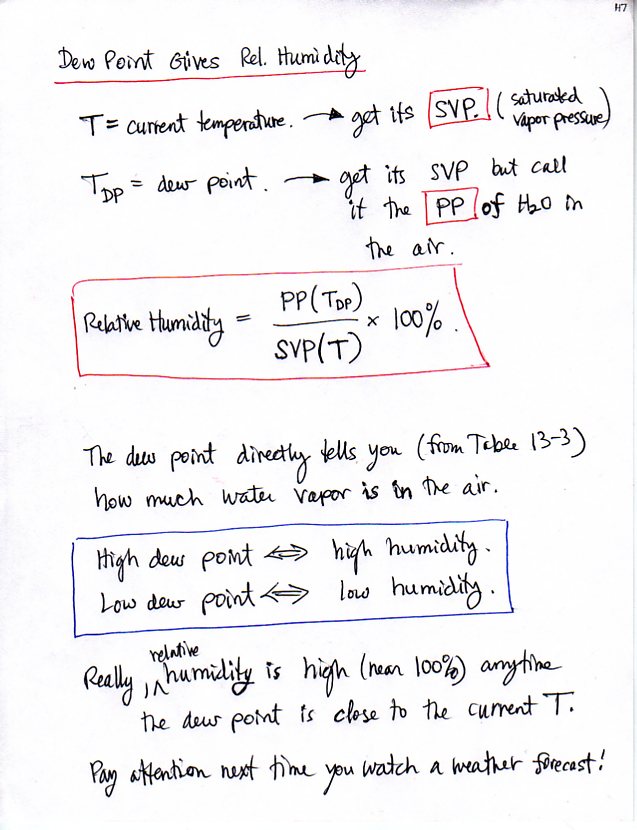 H7
Dew Point Gives Rel. Humidity
T = current temperature. → get its SVP. (saturated vapor pressure)
T_DP = dew point. → get its SVP but call
it the PP of H₂O in
the air.
Relative Humidity = PP(T_DP) / SVP(T) × 100%.
The dew point directly tells you (from Table 13-3)
how much water vapor is in the air.
High dew point ⟺ high humidity.
Low dew point ⟺ low humidity.
Really, relative humidity is high (near 100%) anytime
the dew point is close to the current T.
Pay attention next time you watch a weather forecast!